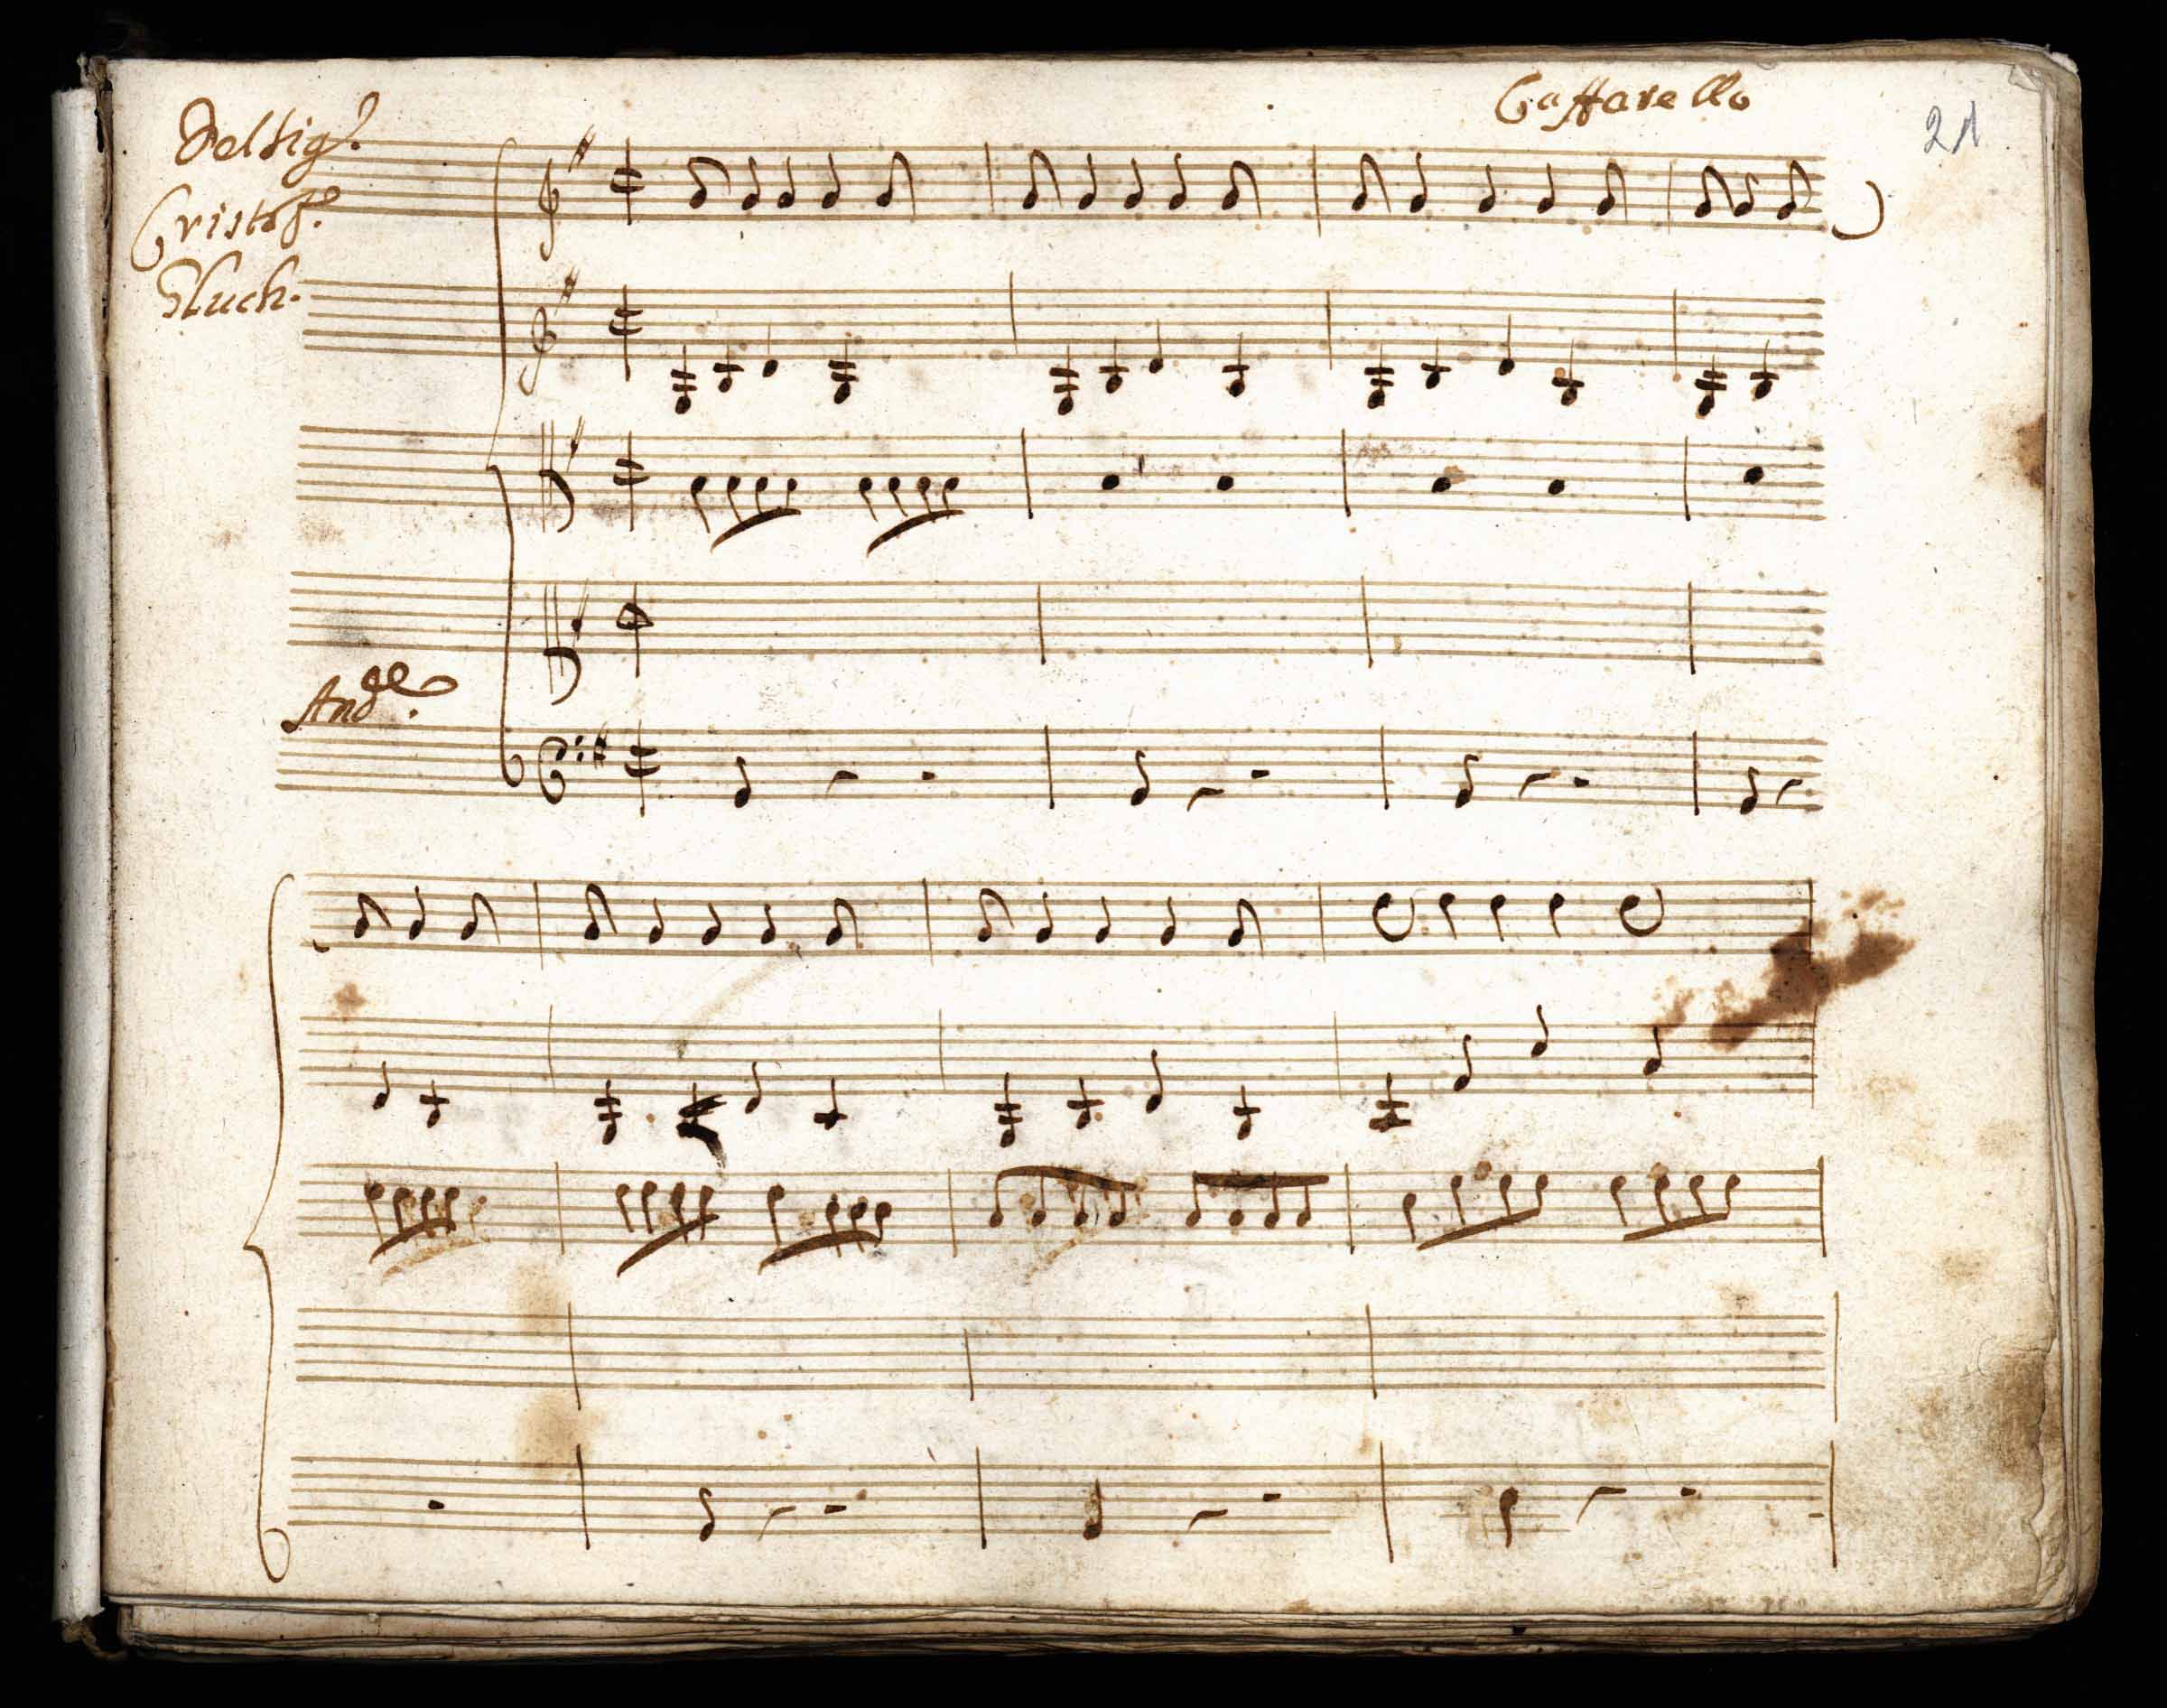 Del Sig.r
Cristof.o
Gluch.
Caffarello
21
And.e